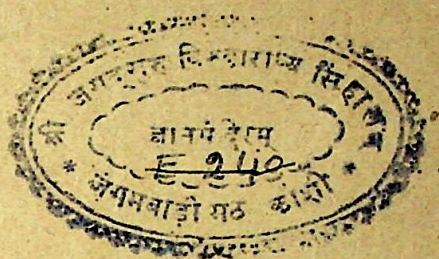 श्री जगद्गुरु विश्वाराध्य सिंहासन
ज्ञानमंदिरम्
E 240
* जंगमवाडी मठ काशी *